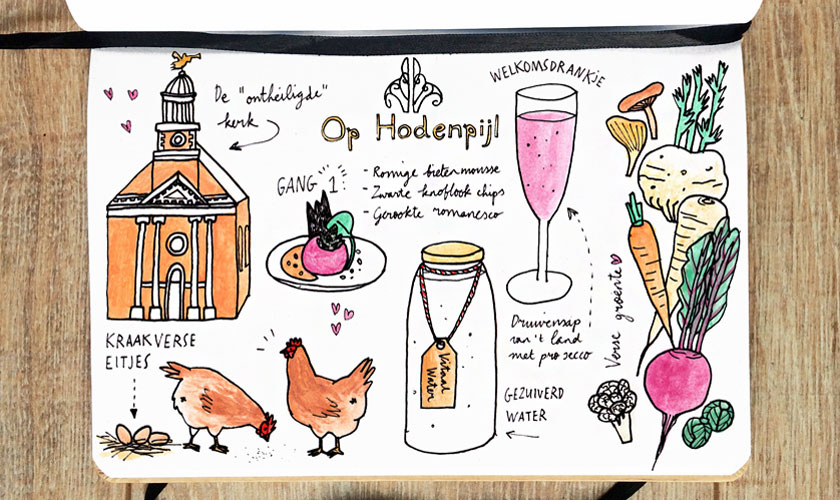 De "ontheiligde"
kerk
Op Hodenpijl
WELKOMSDRANKJE
GANG 1
- Romige bieten mousse
- Zwarte knoflook chips
- Gerookte romanesco
Druivensap
van 't land
met prosecco
Verse groente
KRAAKVERSE
EITJES
Vitaal
Water
GEZUIVERD
WATER